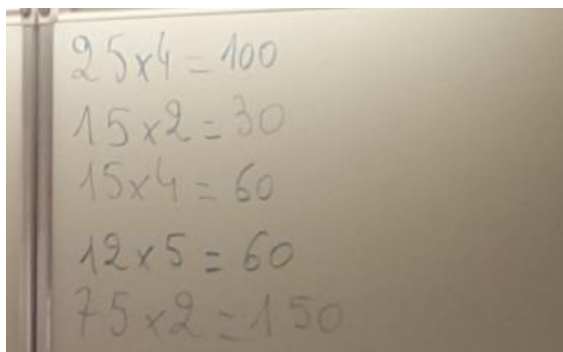 25x4=100
15x2=30
15x4=60
12x5=60
75x2=150